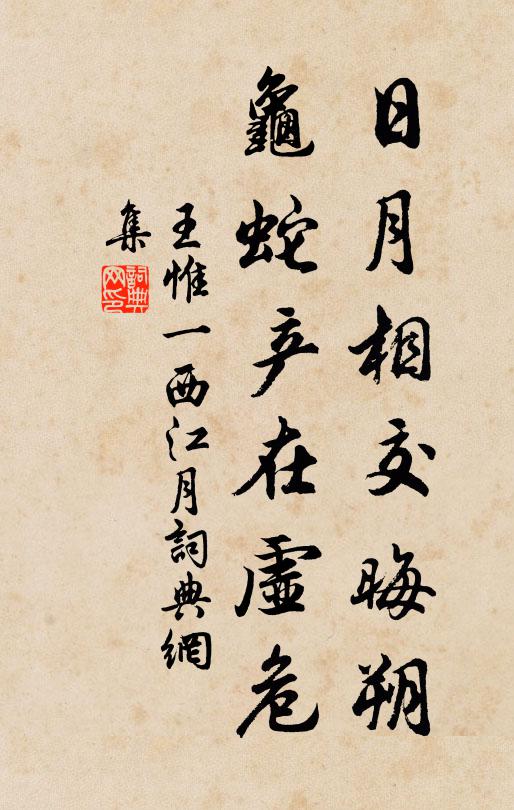 日月相交晦朔
龜蛇产在虛危
王惟一西江月詞典網
集
詞典網印